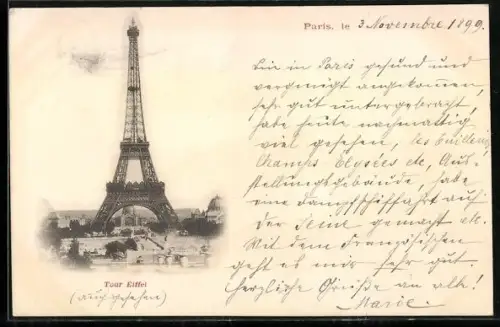 Paris, le 3 Novembre 1899.
Bin in Paris gesund und
vergnügt angekommen,
sehr gut untergebracht,
habe heute nachmittag
viel gesehen, les Tuileries
Champs Elysées etc, Aus-
stellungsgebäude, habe
eine Dampfschiffahrt auf
der Seine gemacht etc.
Mit dem Französischen
geht es mir sehr gut.
Herzliche Grüße an alle!
Marie.
Tour Eiffel
(auch gesehen)